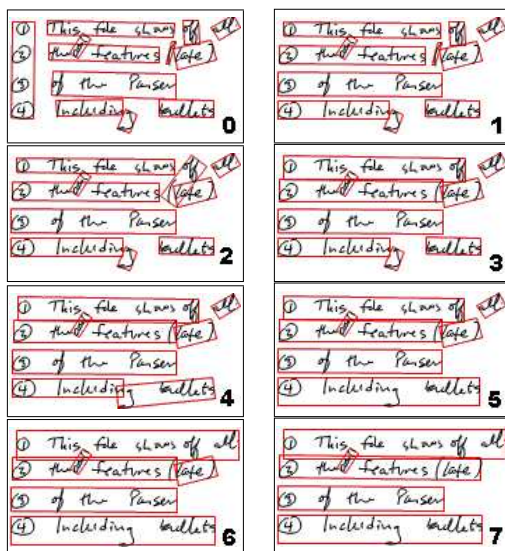 ① This file shows off all
② the features
③ of the Parser
④ Including bullets
0
① This file shows off all
② the features
③ of the Parser
④ Including bullets
1
① This file shows off all
② the features
③ of the Parser
④ Including bullets
2
① This file shows off all
② the features
③ of the Parser
④ Including bullets
3
① This file shows off all
② the features
③ of the Parser
④ Including bullets
4
① This file shows off all
② the features
③ of the Parser
④ Including bullets
5
① This file shows off all
② the features
③ of the Parser
④ Including bullets
6
① This file shows off all
② the features
③ of the Parser
④ Including bullets
7